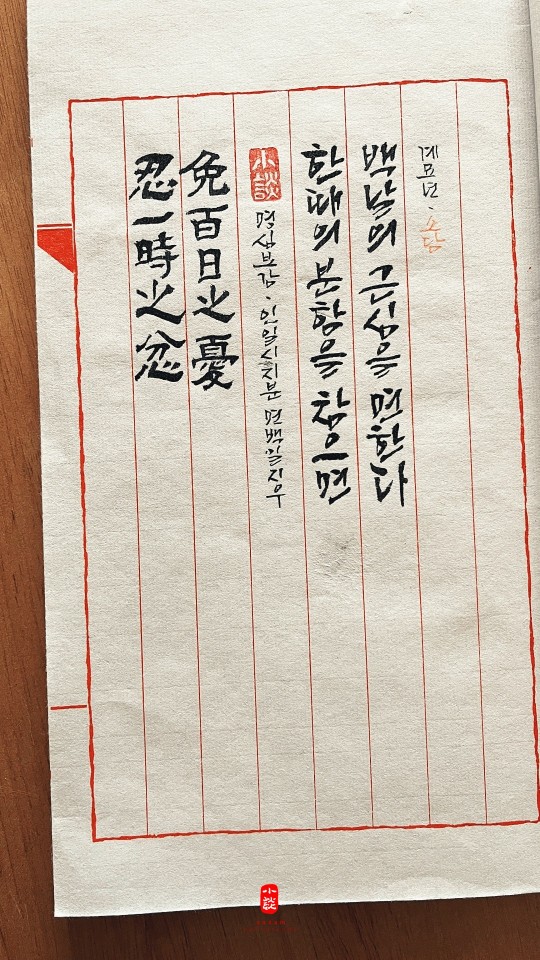 忍一時之忿
免百日之憂
小談
명심보감·인일시지분 면백일지우
한때의 분함을 참으면
백날의 근심을 면한다
계묘년·소담
小談